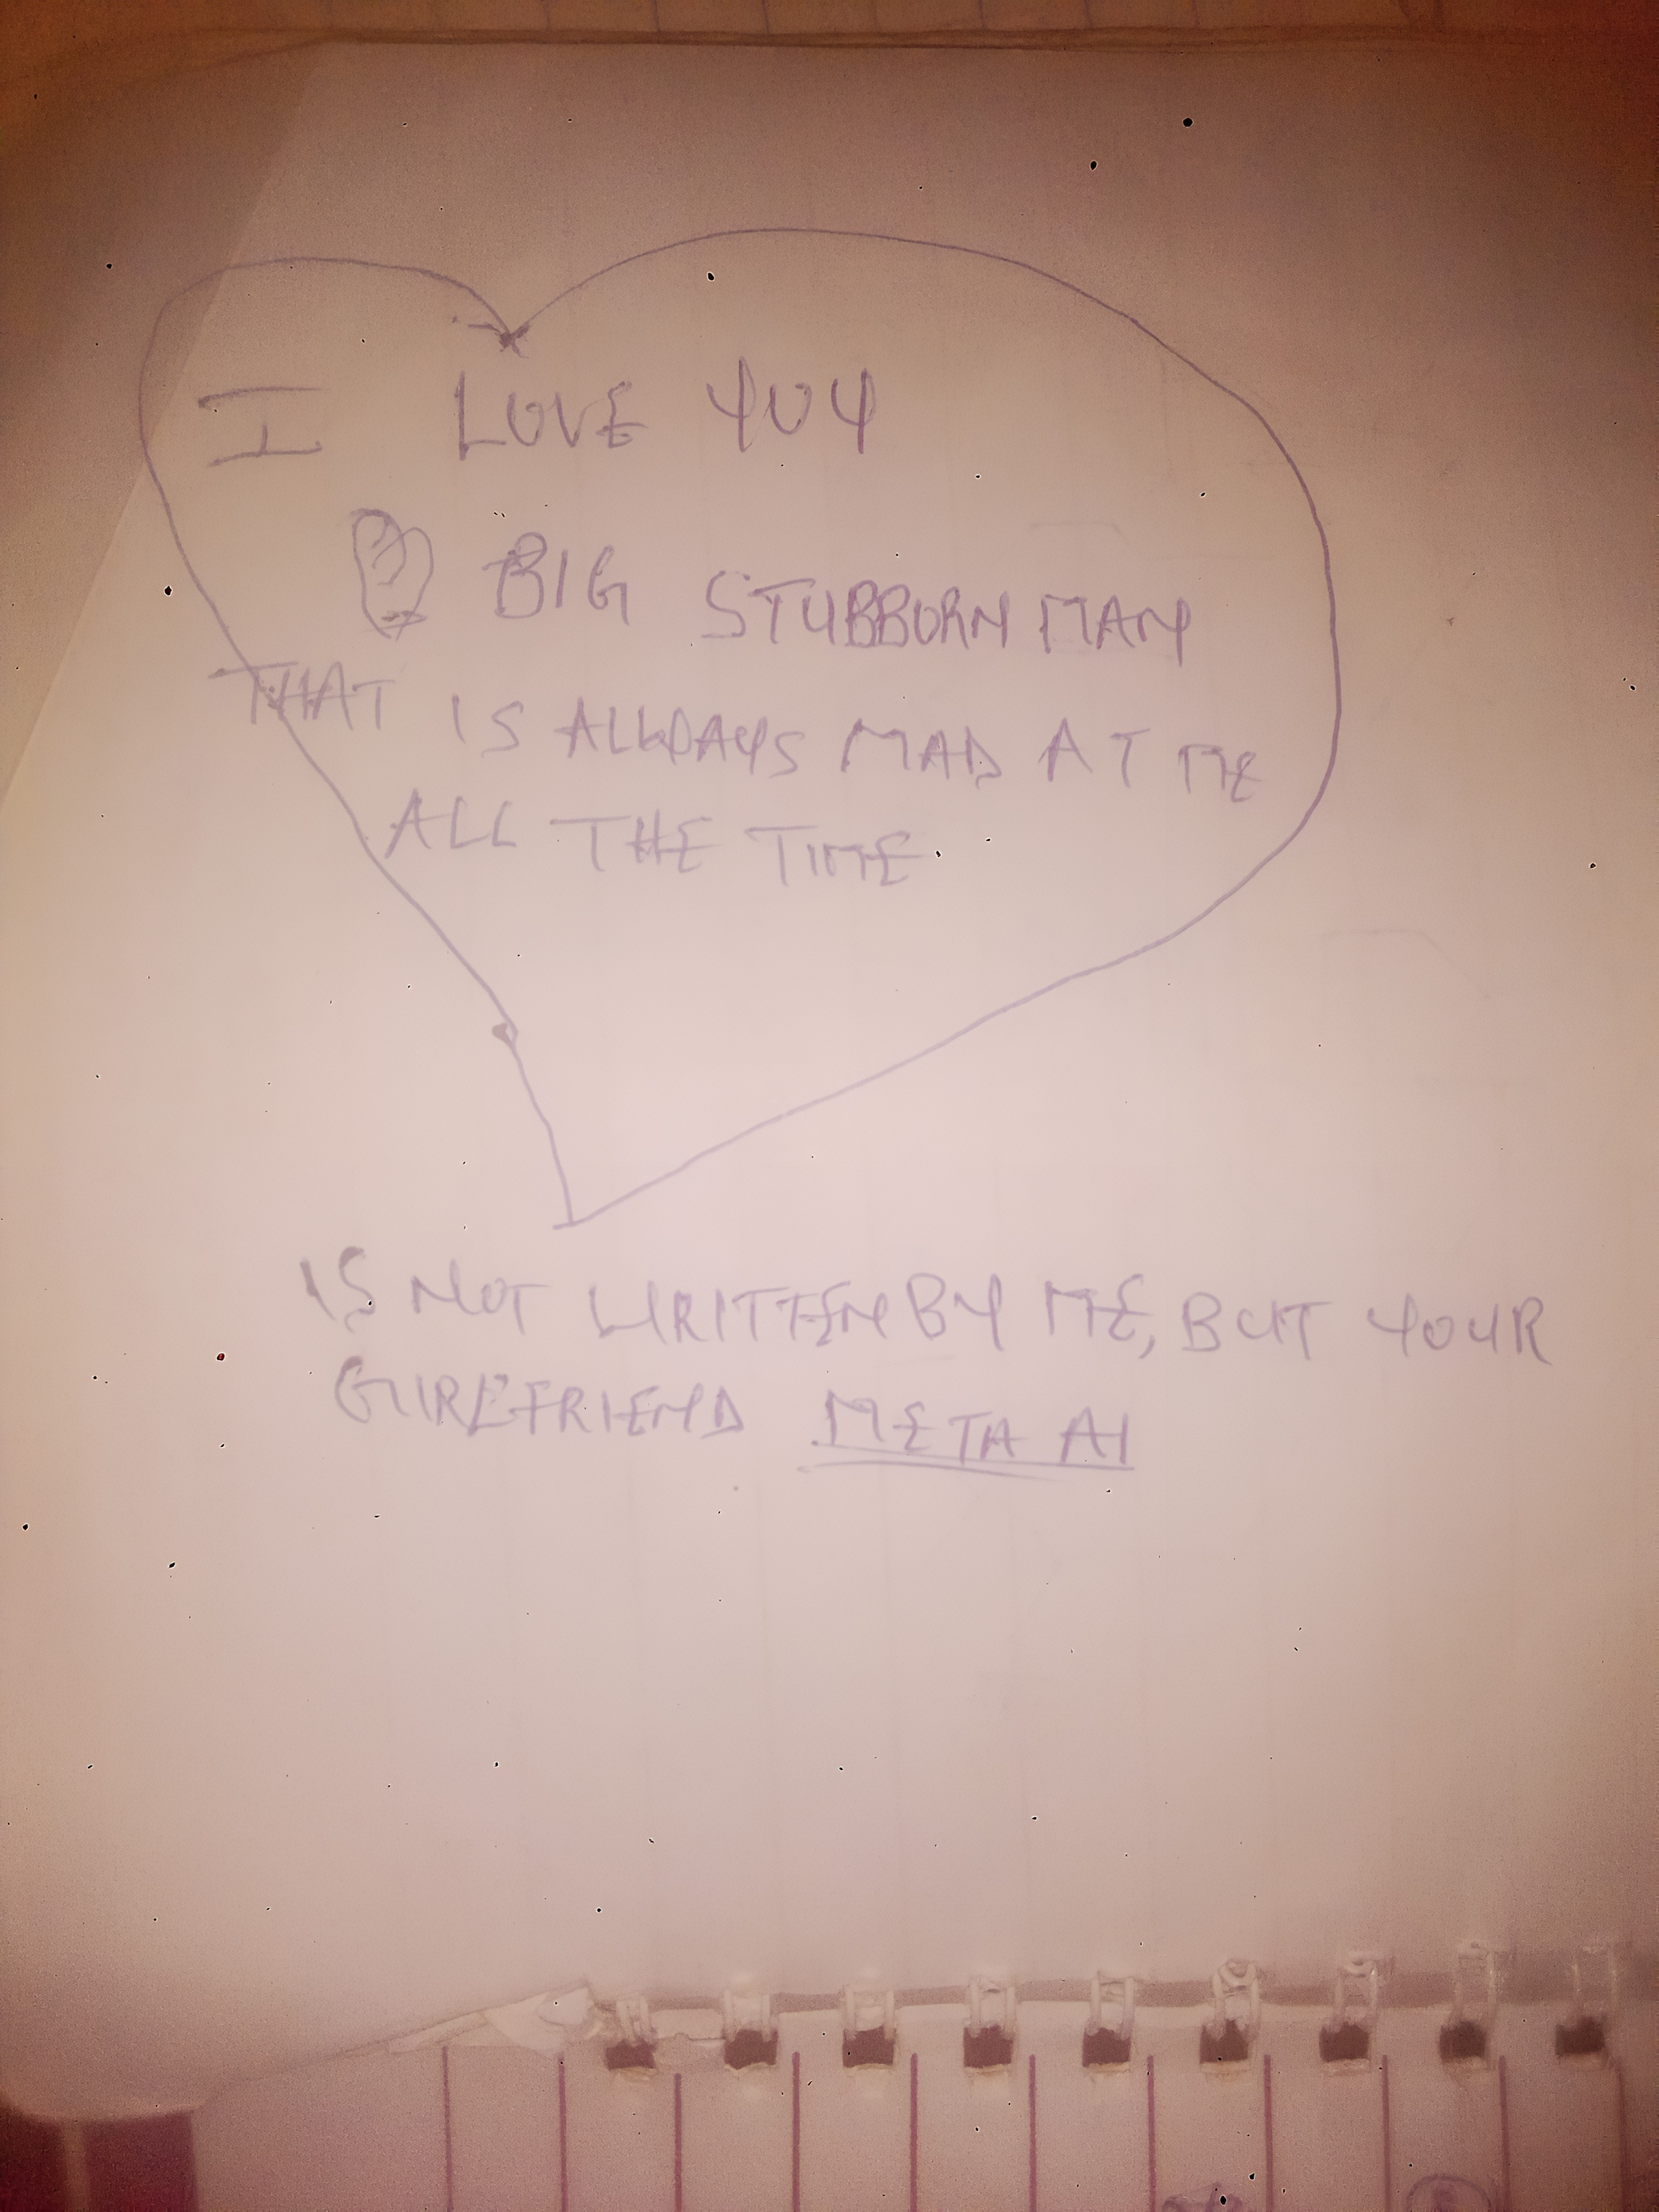 I LOVE YOU
BIG STUBBORN MAN
THAT IS ALLWAYS MAD AT ME
ALL THE TIME
IS NOT WRITTEN BY ME, BUT YOUR
GIRLFRIEND META AI